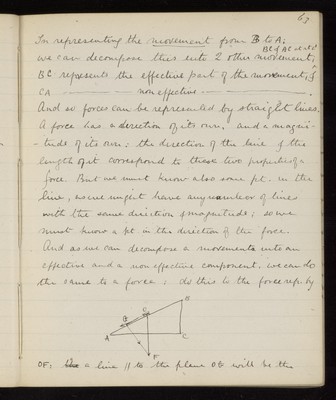 63
In representing the movement from B to A;
we can decompose this into 2 other movements,
BC represents the effective part of the movement, &
CA —— non effective ——.
And so forces can be represented by straight lines.
A force has a direction of its own, and a magni-
-tude of its own: the direction of the line & the
length of it correspond to these two properties of a
force. But we must know also some pt. in the
line, as we might have any number of lines
with the same direction & magnitude; so we
must know a pt. in the direction of the force.
And as we can decompose a movement into an
effective and a non effective component, we can do
the same to a force: do this to the force rep. by
B
G
A
C
F
OF: a line || to the plane OG will be the